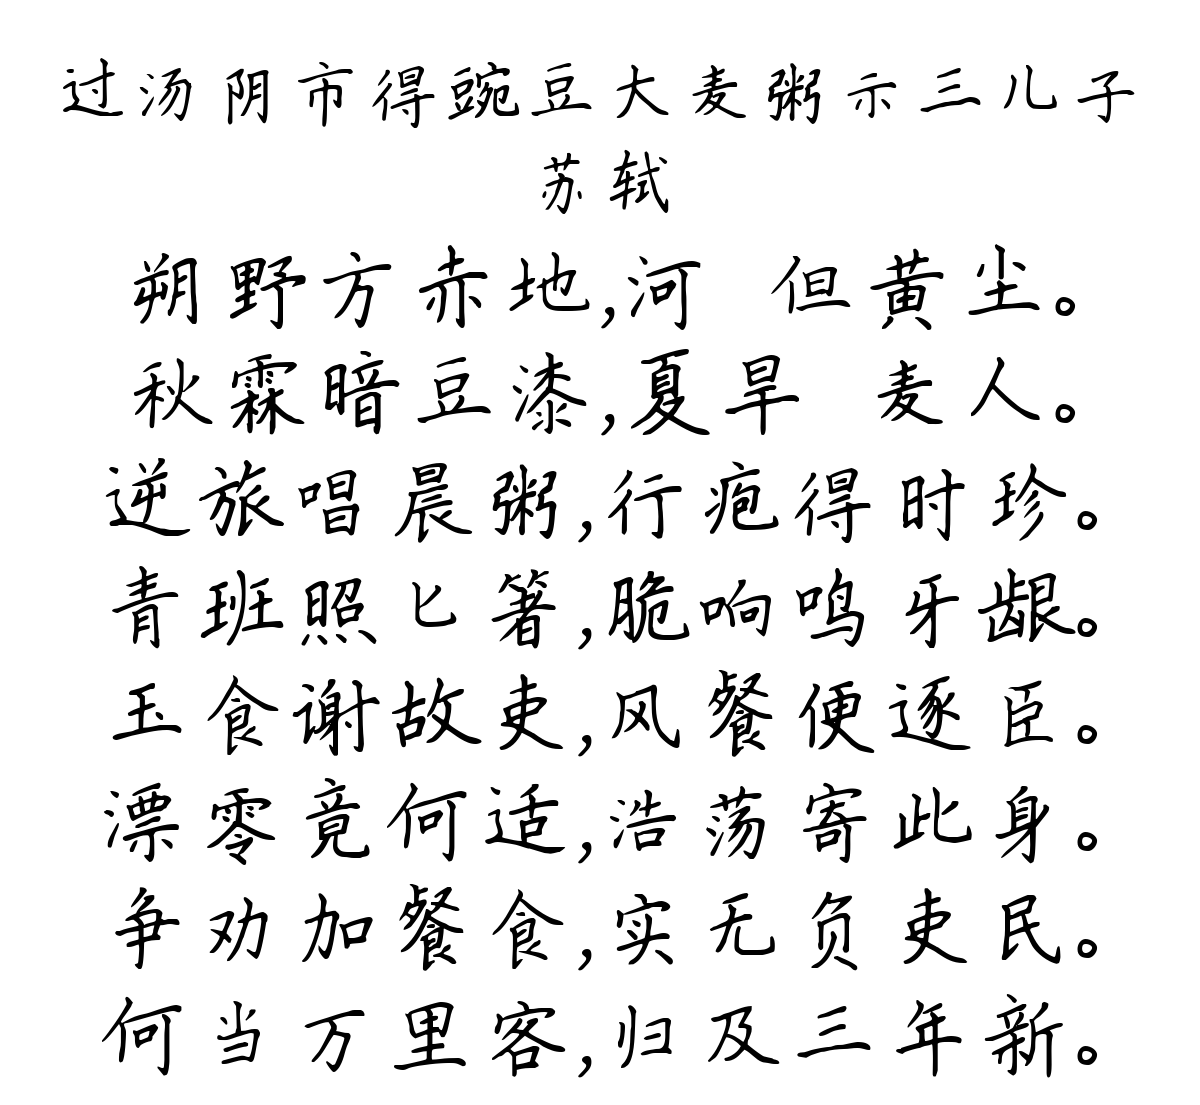 过汤阴市得豌豆大麦粥示三儿子
苏轼
朔野方赤地,河 但黄尘。
秋霖暗豆漆,夏旱 麦人。
逆旅唱晨粥,行疱得时珍。
青班照匕箸,脆响鸣牙龈。
玉食谢故吏,风餐便逐臣。
漂零竟何适,浩荡寄此身。
争劝加餐食,实无负吏民。
何当万里客,归及三年新。